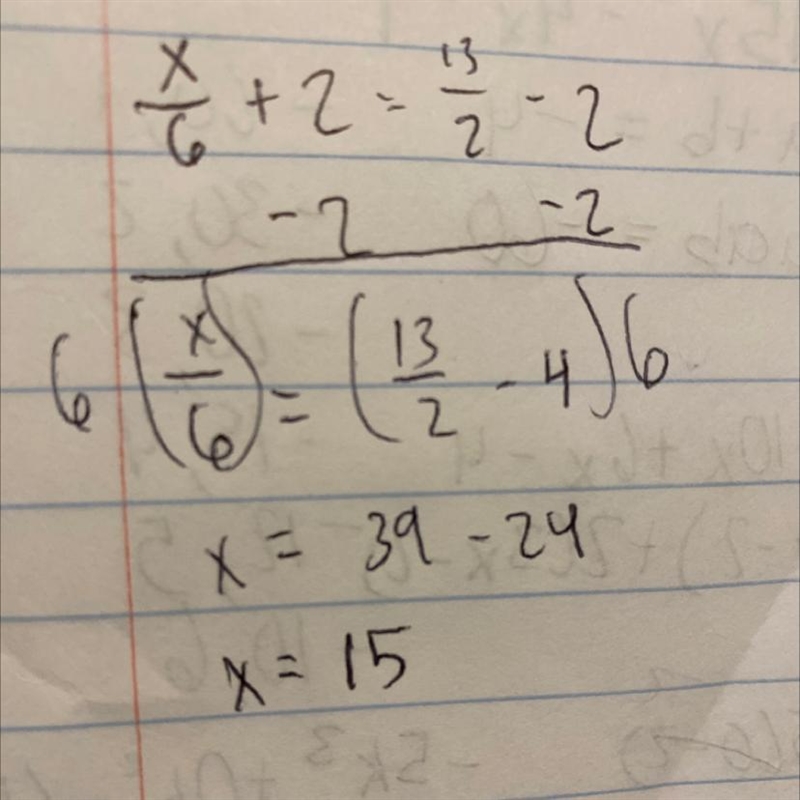 x/6 + 2 = 13/2 - 2
- 2 - 2
6 (x/6) = (13/2 - 4) 6
x = 39 - 24
x = 15